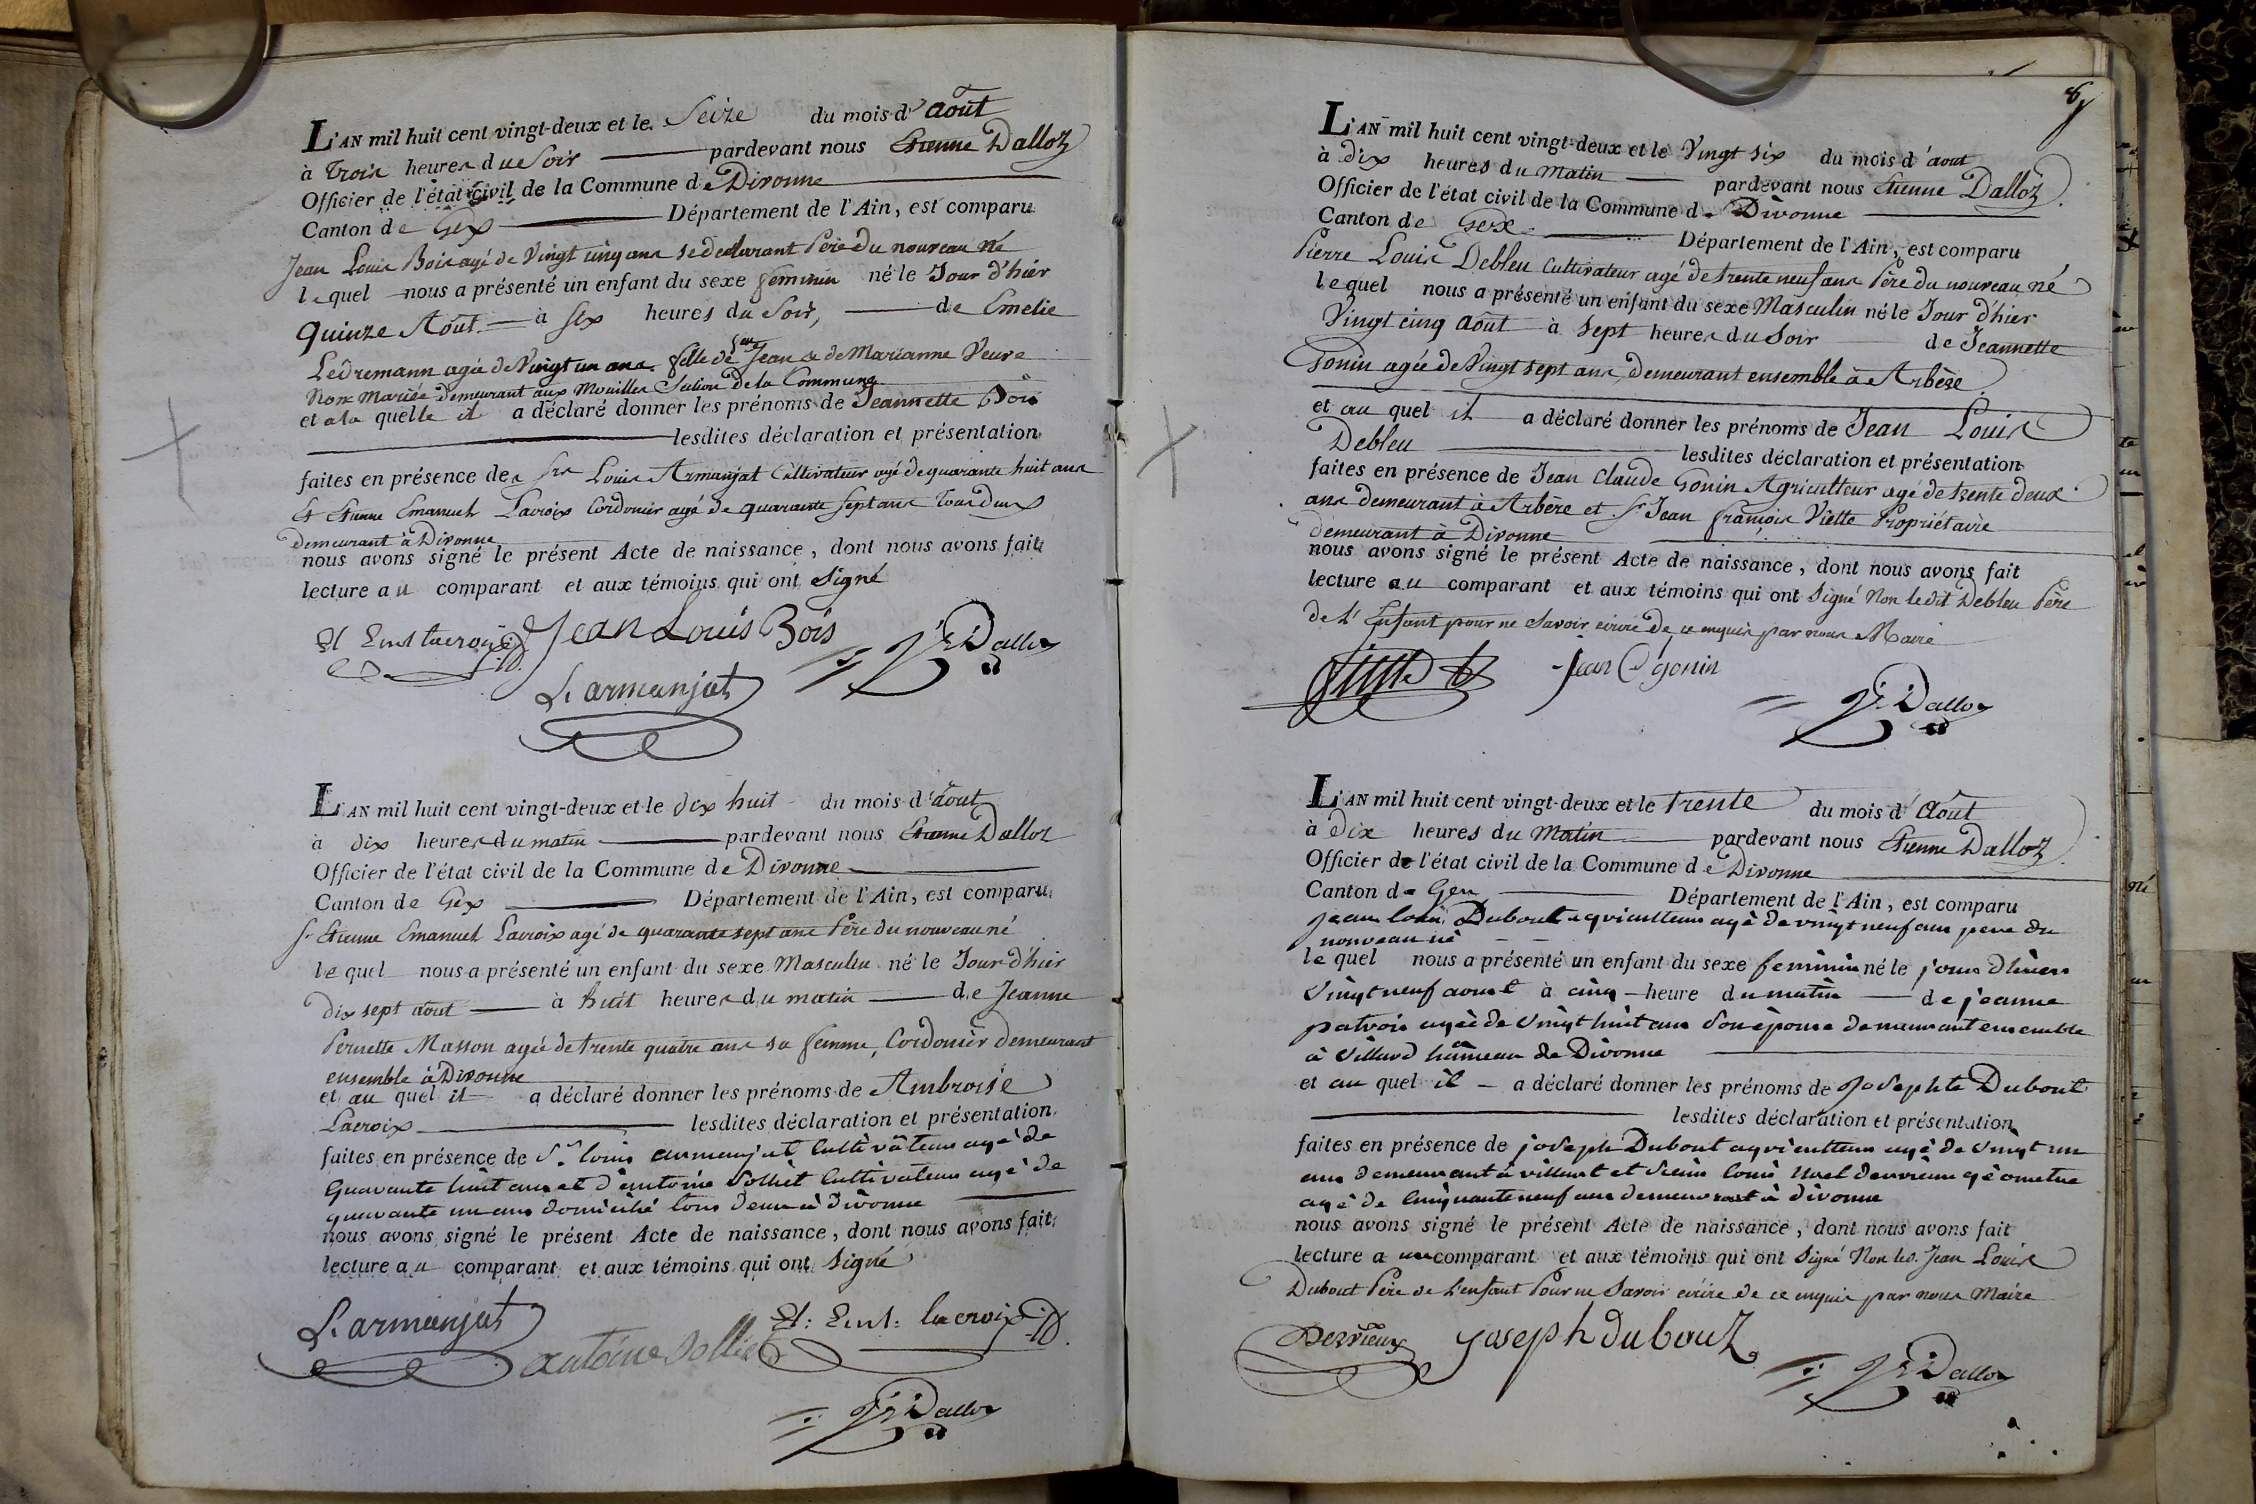 L'AN mil huit cent vingt-deux et le Seize du mois d'août
à Trois heures du Soir pardevant nous Etienne Dalloz
Officier de l'état civil de la Commune de Divonne
Canton de Gex Département de l'Ain, est comparu
Jean Louis Bois agé de Vingt cinq ans se declarant Père du nouveau né
lequel nous a présenté un enfant du sexe feminin né le Jour d'hier
quinze Aout à six heures du Soir, de Emelie
Ledremann agée de Vingt un ans fille de feu Jean & de Marianne Veuve
Non Mariée demeurant aux Mouilles Section de la Commune
et a la quelle il a déclaré donner les prénoms de Jeannette Bois
lesdites déclaration et présentation
faites en présence des Srs Louis Armanjat Cultivateur agé de quarante huit ans
Et Etienne Emanuel Lacroix Cordonier agé de quarante sept ans Tous deux
demeurant à Divonne
nous avons signé le présent Acte de naissance, dont nous avons fait
lecture au comparant et aux témoins qui ont signé
Et Eml lacroix Jean Louis Bois
Je Dalloz
L. armanjat
L'AN mil huit cent vingt-deux et le dix huit du mois d'août
à dix heures du matin pardevant nous Etienne Dalloz
Officier de l'état civil de la Commune de Divonne
Canton de Gex Département de l'Ain, est comparu
Sr Etienne Emanuel Lacroix agé de quarante sept ans Père du nouveau né
lequel nous a présenté un enfant du sexe Masculin né le Jour d'hier
dix sept août à huit heures du matin de Jeanne
Pernette Masson agée de trente quatre ans sa femme, Cordonier demeurant
ensemble à Divonne
et au quel il a déclaré donner les prénoms de Ambroise
Lacroix lesdites déclaration et présentation
faites en présence de Sr. louis armanjat Cultivateur agé de
Quarante huit ans et d'antoine Solliet Cultivateur agé de
quarante un ans domicilié tous deux à divonne
nous avons signé le présent Acte de naissance, dont nous avons fait
lecture au comparant et aux témoins qui ont signé
L. armanjat Et: Eml: lacroix
antoine Solliet
Je Dalloz
L'AN mil huit cent vingt-deux et le Vingt six du mois d'aout
à Dix heures du Matin pardevant nous Etienne Dalloz
Officier de l'état civil de la Commune de Divonne
Canton de Gex Département de l'Ain, est comparu
Pierre Louis Debleu Cultivateur agé de trente neuf ans Père du nouveau né
lequel nous a présenté un enfant du sexe Masculin né le Jour d'hier
Vingt cinq Août à sept heures du Soir de Jeannette
Gonin agée de Vingt sept ans demeurant ensemble à Arbère
et au quel il a déclaré donner les prénoms de Jean Louis
Debleu lesdites déclaration et présentation
faites en présence de Jean Claude Gonin Agriculteur agé de trente deux
ans demeurant à Arbère et Sr Jean françois Viette Propriétaire
demeurant à Divonne
nous avons signé le présent Acte de naissance, dont nous avons fait
lecture au comparant et aux témoins qui ont signé Non ledit Debleu Père
de l'Enfant pour ne Savoir écrire de ce enquis par nous Maire
Jean C gonin
Je Dalloz
L'AN mil huit cent vingt-deux et le trente du mois d'Août
à Dix heures du Matin pardevant nous Etienne Dalloz
Officier de l'état civil de la Commune de Divonne
Canton de Gex Département de l'Ain, est comparu
jean louis Dubout agriculteur agé de vingt neuf ans pere du
nouveau né
lequel nous a présenté un enfant du sexe feminin né le jour d'hier
Vingt neuf aoust à cinq heure du matin de jeanne
patrois agée de Vingt huit ans Son épouse demeurant ensemble
à Villard hameau de Divonne
et au quel il a déclaré donner les prénoms de Josephte Dubout
lesdites déclaration et présentation
faites en présence de joseph Dubout agriculteur agé de Vingt un
ans demeurant à villart et louis derrieux géometre
agé de Cinquante neuf ans demeurant à divonne
nous avons signé le présent Acte de naissance, dont nous avons fait
lecture au comparant et aux témoins qui ont signé Non led. Jean Louis
Dubout Père de l'enfant Pour ne Savoir écrire de ce enquis par nous Maire
Derrieux Joseph dubout
Je Dalloz